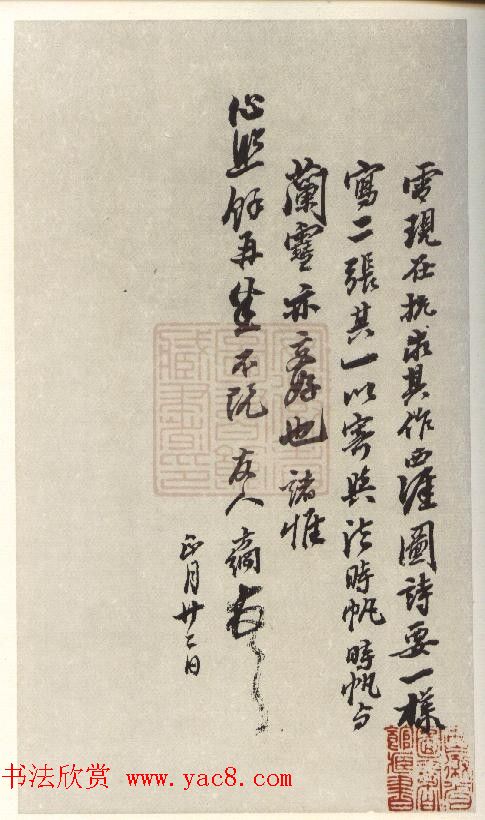 雪現在杭求其作西涯圖詩要一樣
寫二張其一以寄與法時帆時帆与
蘭雪亦交好也諸惟
心照餘再生不既 友人
正月廿二日
书法欣赏 www.yac8.com